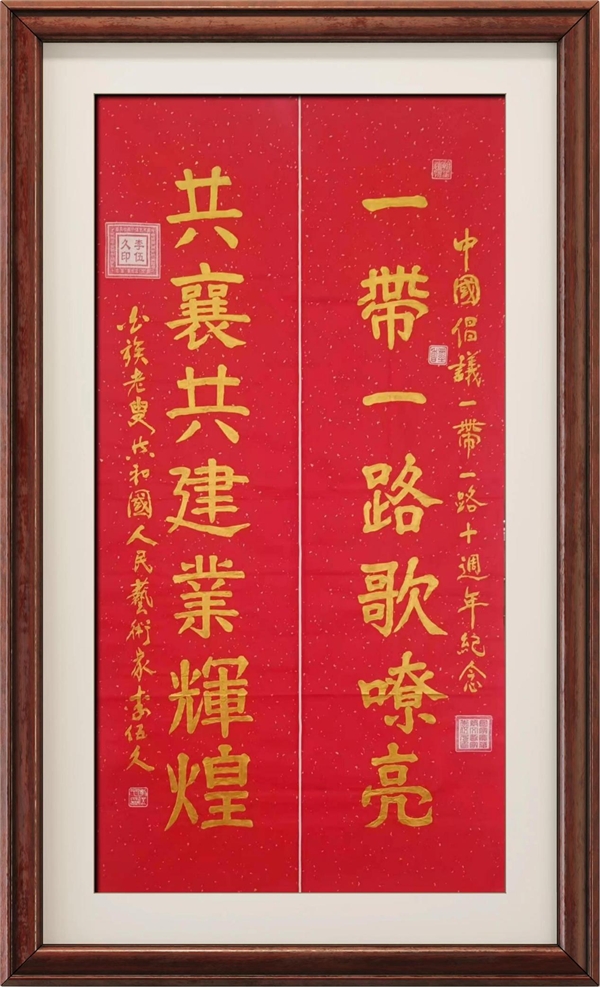 中國倡議一帶一路十週年紀念
一帶一路歌嘹亮
共襄共建業輝煌
李伍久印
白族老叟共和國人民藝術家李伍久